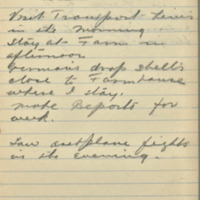 Visit Transport Lines
in the Morning
Stay at Farm in
afternoon
Germans drop shells
close to Farmhouse
where I stay.
made Reports for
week.
Saw aeroplane fights
in the Evening.